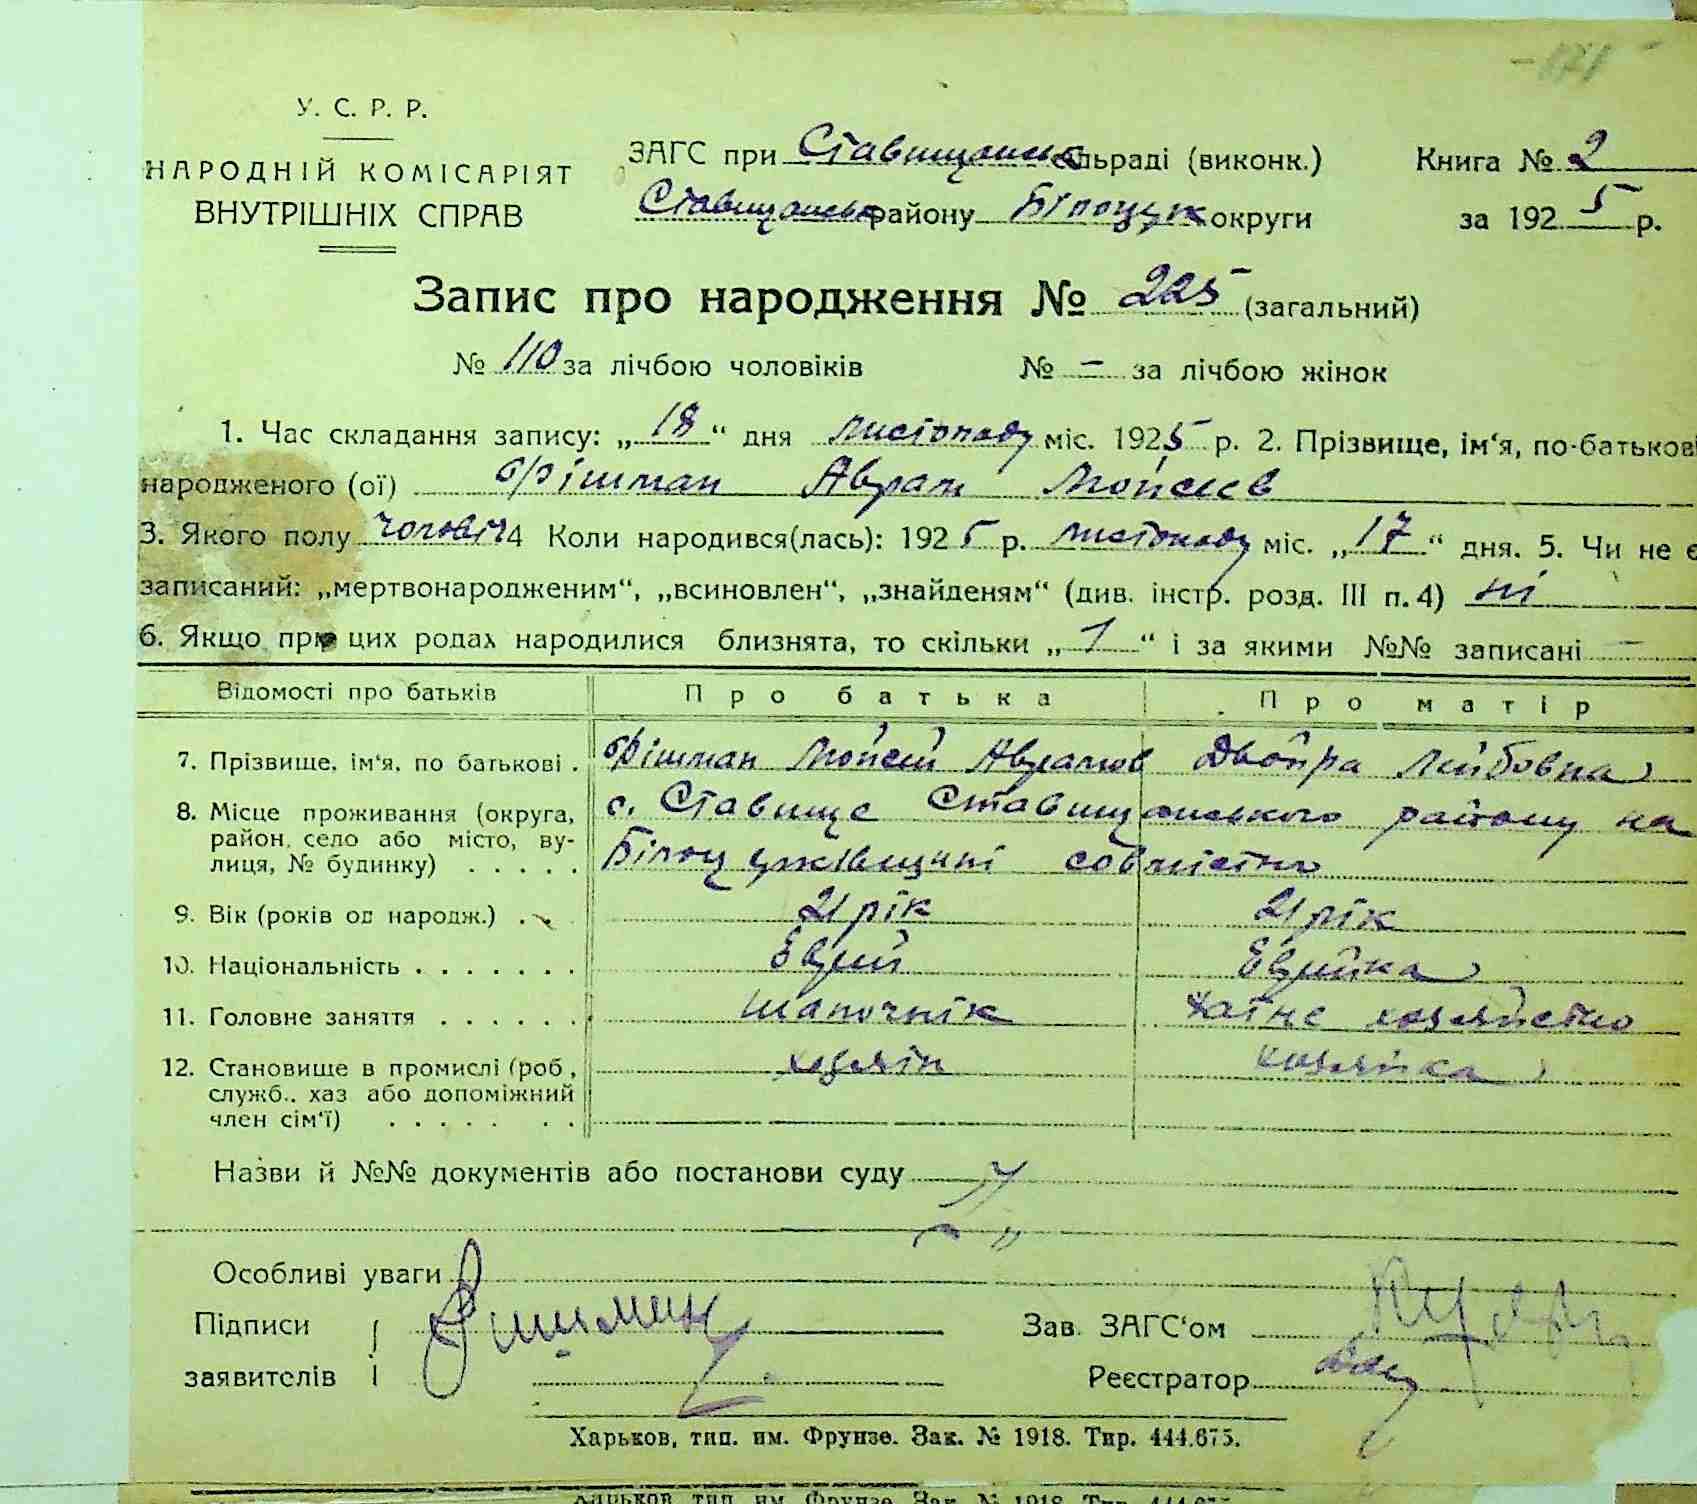 -171-
У. С. Р. Р.
НАРОДНІЙ КОМІСАРІЯТ
ВНУТРІШНІХ СПРАВ
ЗАГС при Ставищанськ сільраді (виконк.) Книга № 2
Ставищанськ району Білоцерк округи за 1925 р.
Запис про народження № 225 (загальний)
№ 110 за лічбою чоловіків № – за лічбою жінок
1. Час складання запису: „18“ дня листопаду міс. 1925 р. 2. Прізвище, ім‘я, по-батькові
народженого (ої) Фішман Аврам Мойсеєв
3. Якого полу чоловіч 4 Коли народився(лась): 1925 р. листопаду міс. „17“ дня. 5. Чи не є
записаний: „мертвонародженим“, „всиновлен“, „знайденям“ (див. інстр. розд. III п. 4) ні
6. Якщо при цих родах народилися близнята, то скільки „1“ і за якими №№ записані –
Відомості про батьків Про батька Про матір
7. Прізвище, ім‘я, по батькові . Фішман Мойсей Аврамов Двойра Лейбовна
8. Місце проживання (округа, с. Ставище Ставищанського району на
район, село або місто, ву-
лиця, № будинку) . . . . . Білоцерківщині совмістно
9. Вік (років од народж.) . . 21 рік 21 рік
10. Національність . . . . . . . Еврей Еврейка
11. Головне заняття . . . . . . Шапочнік хатнє хозяйство
12. Становище в промислі (роб., хозяїн хозяйка
служб., хаз або допоміжний
член сім‘ї) . . . . . . .
Назви й №№ документів або постанови суду
Особливі уваги
Підписи Фишман Зав. ЗАГС‘ом
заявителів Реєстратор
Харьков, тип. им. Фрунзе. Зак. № 1918. Тир. 444.675.
Харьков, тип. им. Фрунзе. Зак. № 1918. Тир. 444.675